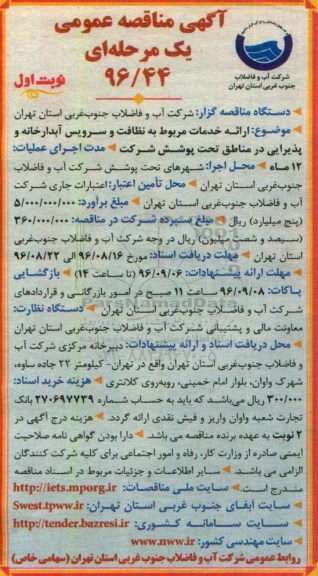 آگهی مناقصه عمومی
یک مرحله‌ای
۹۶/۴۴
نوبت اول
شرکت آب و فاضلاب
جنوب غربی استان تهران
دستگاه مناقصه گزار: شرکت آب و فاضلاب جنوب‌غربی استان تهران
موضوع: ارائه خدمات مربوط به نظافت و سرویس آبدارخانه و
پذیرایی در مناطق تحت پوشش شرکت مدت اجرای عملیات:
۱۲ ماه محل اجرا: شهرهای تحت پوشش شرکت آب و فاضلاب
جنوب‌غربی استان تهران محل تأمین اعتبار: اعتبارات جاری شرکت
آب و فاضلاب جنوب‌غربی استان تهران مبلغ برآورد: ۵/۰۰۰/۰۰۰/۰۰۰
(پنج میلیارد) ریال مبلغ سپرده شرکت در مناقصه: ۳۶۰/۰۰۰/۰۰۰
(سیصد و شصت میلیون) ریال در وجه شرکت آب و فاضلاب جنوب‌غربی
استان تهران مهلت دریافت اسناد: مورخ ۹۶/۰۸/۱۶ الی ۹۶/۰۸/۲۲
مهلت ارائه پیشنهادات: ۹۶/۰۹/۰۶ (تا ساعت ۱۴) بازگشایی
پاکات: ۹۶/۰۹/۰۸ ساعت ۱۱ صبح در امور بازرگانی و قراردادهای
شرکت آب و فاضلاب جنوب‌غربی استان تهران دستگاه نظارت:
معاونت مالی و پشتیبانی شرکت آب و فاضلاب جنوب‌غربی استان تهران
محل دریافت اسناد و ارائه پیشنهادات: دبیرخانه مرکزی شرکت آب
و فاضلاب جنوب غربی استان تهران واقع در تهران- کیلومتر ۲۲ جاده ساوه،
شهرک واوان، بلوار امام خمینی، روبه‌روی کلانتری هزینه خرید اسناد:
۳۰۰/۰۰۰ ریال می‌باشد که باید به حساب شماره ۲۷۰۶۹۷۷۳۹ بانک
تجارت شعبه واوان واریز و فیش نقدی ارائه گردد. هزینه درج آگهی در
۲ نوبت به عهده برنده مناقصه می باشد. دارا بودن گواهی نامه صلاحیت
ایمنی صادره از وزارت کار، رفاه و امور اجتماعی برای کلیه شرکت کنندگان
الزامی می باشد. سایر اطلاعات و جزئیات مربوط در اسناد مناقصه
مندرج است. سایت ملی مناقصات: http://iets.mporg.ir
سایت آبفای جنوب غربی استان تهران: Swest.tpww.ir
سایت سامانه کشوری: http://tender.bazresi.ir
سایت مهندسی کشور: www.nww.ir
روابط عمومی شرکت آب و فاضلاب جنوب غربی استان تهران (سهامی خاص)